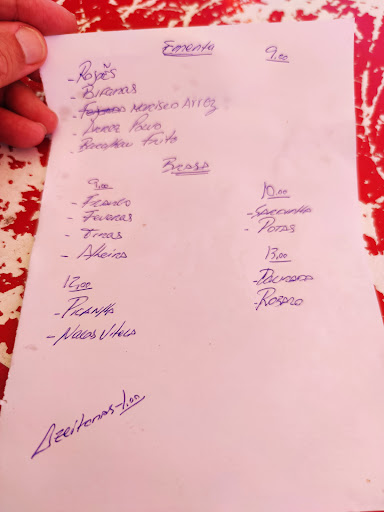 Ementa 9,00
- Rojões
- Bifanas
- Marisco Arroz
- Arroz Polvo
- Bacalhau Frito
Brasa
9,00
- Frango
- Feveras
- Tiras
- Alheira
12,00
- Picanha
- Nacos Vitela
10,00
- Sardinha
- Potas
13,00
- Dourada
- Robalo
Azeitonas - 1.00